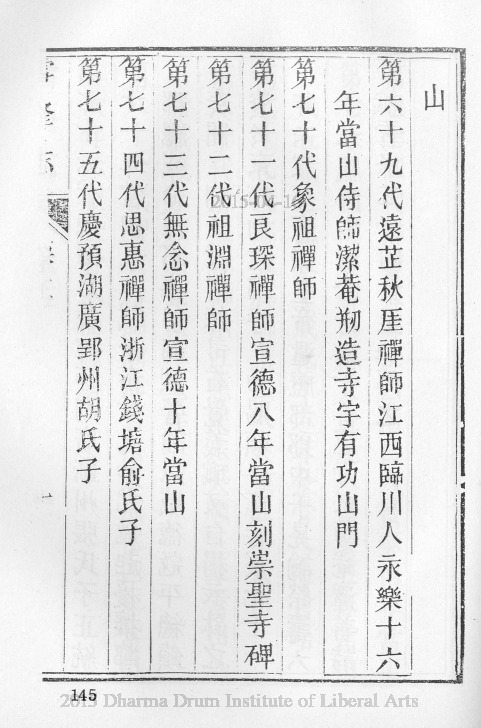 山
第六十九代遠芷秋厓禪師江西臨川人永樂十六
年當山侍師潔菴剏造寺宇有功山門
第七十代象祖禪師
第七十一代良琛禪師宣德八年當山刻崇聖寺碑
第七十二代祖淵禪師
第七十三代無念禪師宣德十年當山
第七十四代思惠禪師浙江錢塘俞氏子
第七十五代慶預湖廣郢州胡氏子
145
2015 Dharma Drum Institute of Liberal Arts